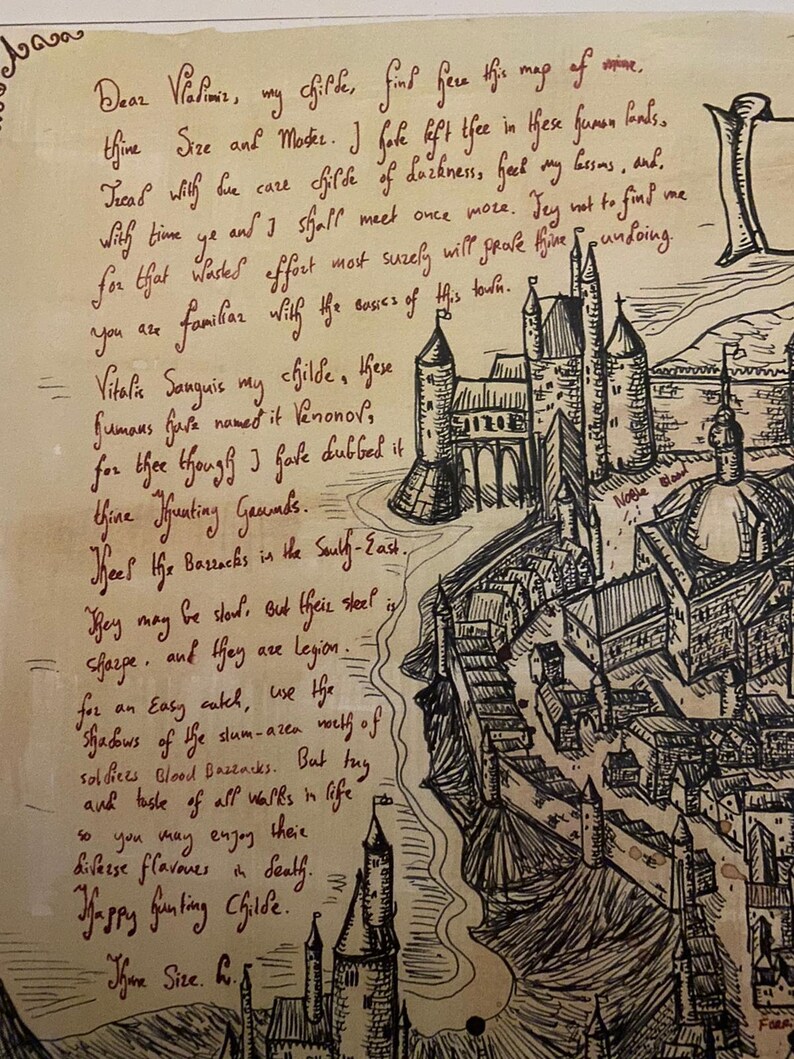 Dear Vladimir, my childe, find here this map of mine,
thine Sire and Master. I have left thee in these human lands.
Tread with due care childe of darkness, heed my lessons, and,
with time ye and I shall meet once more. Try not to find me
for that wasted effort most surely will prove thine undoing.
you are familiar with the basics of this town.
Vitalis Sanguis my childe, these
humans have named it Venonov,
for thee though I have dubbed it
thine Hunting Grounds.
Heed the Barracks in the South-East.
They may be slow, but their steel is
sharpe, and they are Legion.
for an Easy catch, use the
shadows of the slum-area north of
soldiers Blood Barracks. But try
and taste of all walks in life
so you may enjoy their
diverse flavours in death.
Happy hunting Childe.
Thine Sire.
Noble Blood